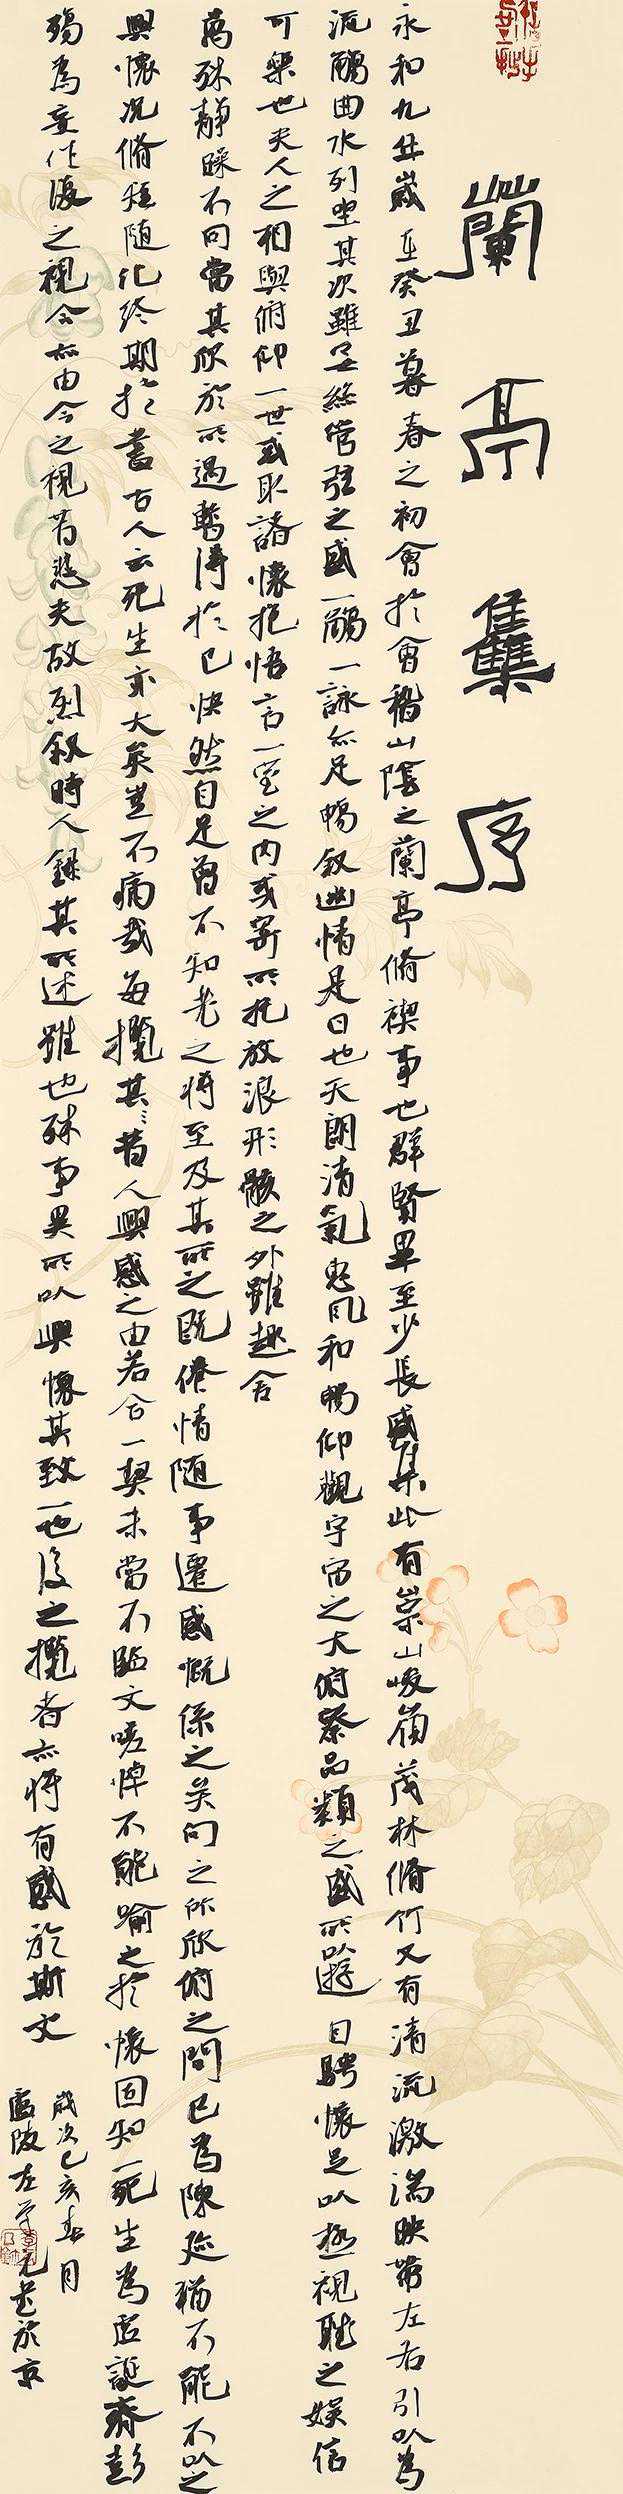 蘭亭集序
永和九年歲在癸丑暮春之初會於會稽山陰之蘭亭脩禊事也群賢畢至少長咸集此有崇山峻嶺茂林脩竹又有清流激湍映帶左右引以為
流觴曲水列坐其次雖無絲管弦之盛一觴一詠亦足暢敘幽情是日也天朗清氣惠風和暢仰觀宇宙之大俯察品類之盛所以遊目騁懷足以極視聽之娛信
可樂也夫人之相與俯仰一世或取諸懷抱悟言一室之內或寄所托放浪形骸之外雖趣舍
萬殊靜躁不同當其欣於所遇暫得於己快然自足曾不知老之將至及其所之既倦情隨事遷感慨係之矣向之所欣俯之間已為陳迹猶不能不以之
興懷況脩短隨化終期於盡古人云死生亦大矣豈不痛哉每攬其〻昔人興感之由若合一契未嘗不臨文嗟悼不能喻之於懷固知一死生為虛誕齊彭
殤為妄作後之視今亦由今之視昔悲夫故列敘時人錄其所述雖也殊事異所以興懷其致一也後之攬者亦將有感於斯文
歲次己亥春月
左元書於京